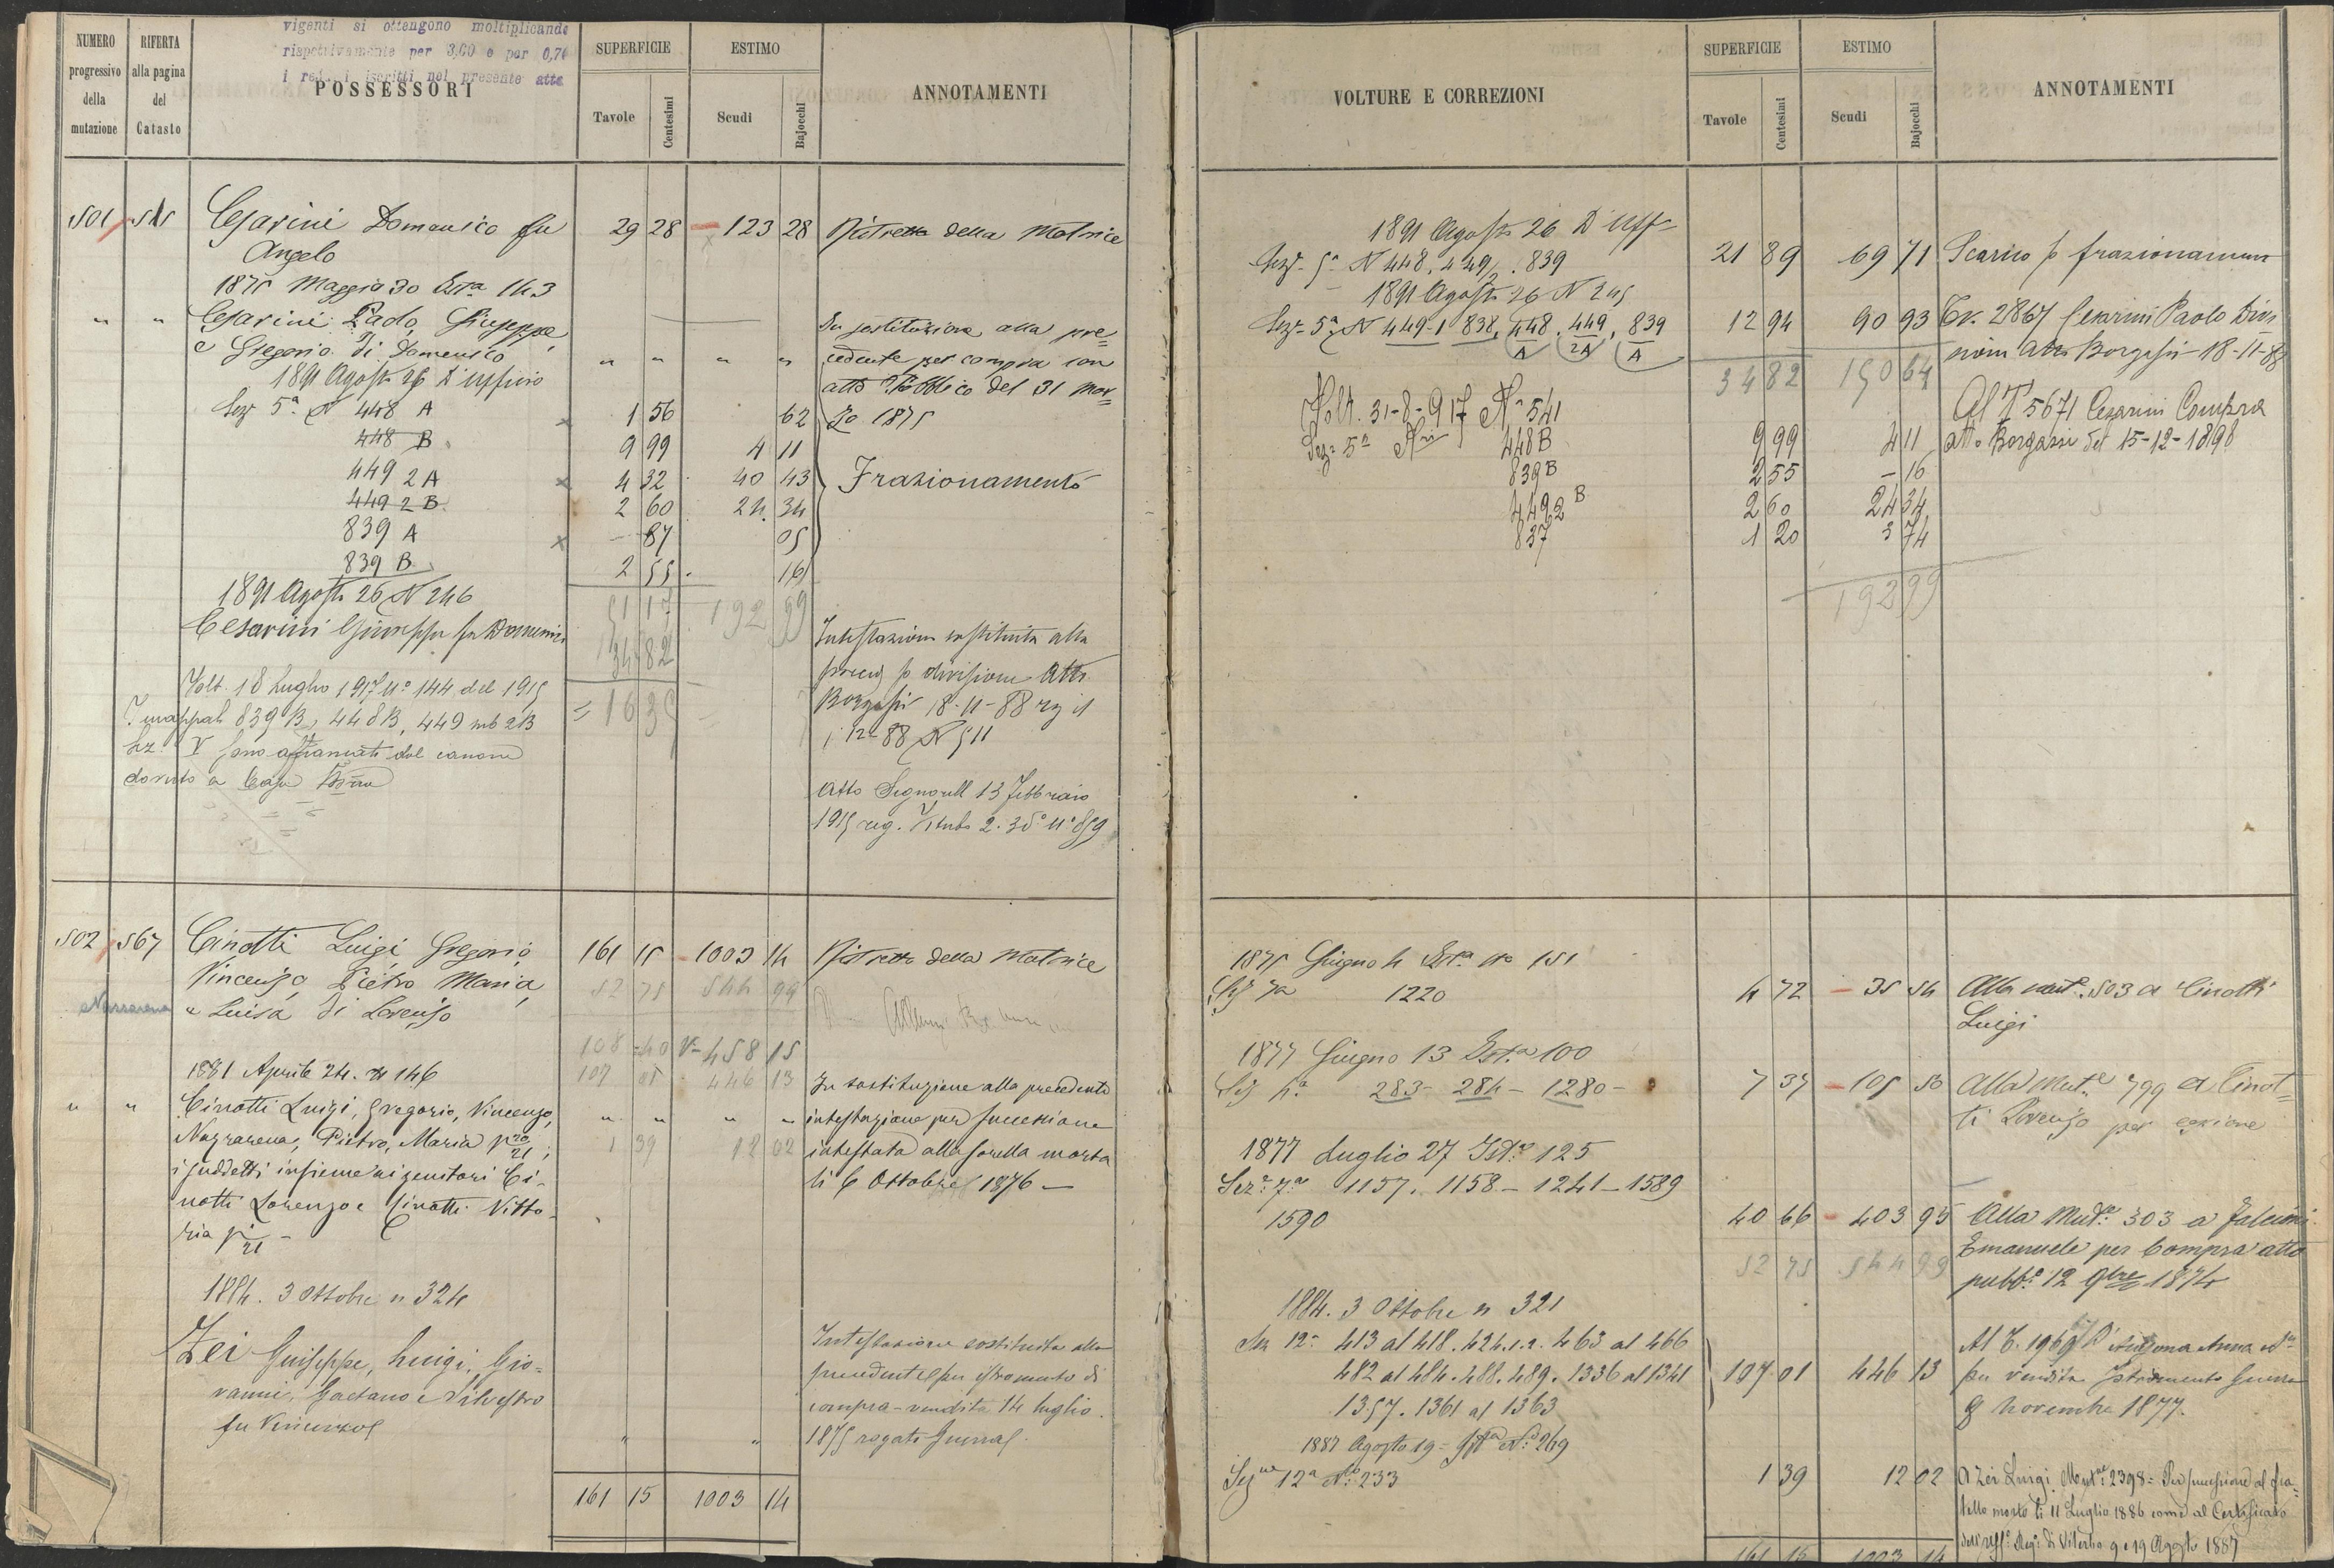 vigenti si ottengono moltiplicando
rispettivamente per 3,00 e per 0,70
i redditi iscritti nel presente atto
NUMERO progressivo della mutazione
RIFERTA alla pagina del Catasto
POSSESSORI
SUPERFICIE
Tavole Centesimi
ESTIMO
Scudi Bajocchi
ANNOTAMENTI
501 515 Cesarini Domenico fu 29 28 123 28 Ristretto della Matrice
Angelo
1875 Maggio 30 Ist.a 143
" " Cesarini Paolo, Giuseppe In sostituzione alla pre=
e Gregorio di Domenico " " " " cedente per compra con
1891 Agosto 26 D'Ufficio atto Pubblico del 31 Mar=
Sez 5a N 448 A 1 56 62 zo 1875
448 B 9 99 4 11
449 2 A 4 32 40 43 Frazionamento
449 2 B 2 60 24 34
839 A - 87 05
839 B 2 55 16
1891 Agosto 26 N 246 51 17 192 99
Cesarini Giuseppe fu Domenico 34 82
= 16 35
Intestazione sostituita alla
preced p divisione Atto
Borgassi 18-11-88
12-88 N 511
Volt. 18 Luglio 1917 No 144 del 1915
I mappali 839 B, 448 B, 449 sub 2B
Sez. V sono affrancati dal canone
dovuto a Casa
Atto Signorelli 13 Febbraio
1915 reg. Viterbo 2. 3o No 859
502 567 Cinotti Luigi, Gregorio, 161 15 1003 14 Ristretto della Matrice
Vincenzo, Pietro, Maria, 52 75 544 99
Nazzarena e Luisa di Lorenzo
108 40 458 15
1881 Aprile 24. N 146 107 01 446 13 In sostituzione alla precedente
" " Cinotti Luigi, Gregorio, Vincenzo, " " " " intestazione per successione
Nazzarena, Pietro, Maria p 20/21, 1 39 12 02 intestata alla sorella morta
i suddetti insieme ai genitori Ci- li 6 Ottobre 1876 -
notti Lorenzo e Cinotti Vitto-
ria p 1/21 -
1884. 3 Ottobre n 324
Zei Giuseppe, Luigi, Gio= Intestazione sostituita alla
vanni, Gaetano e Silvestro precedente per istromento di
fu Vincenzo compra-vendita 14 luglio
" " 1875 rogato
161 15 1003 14
VOLTURE E CORREZIONI
SUPERFICIE
Tavole Centesimi
ESTIMO
Scudi Bajocchi
ANNOTAMENTI
1891 Agosto 26 D'Uff
Sez. 5a N 448, 449/2, 839 21 89 69 71 Scarico p frazionamento
1891 Agosto 26 N 245
Sez. 5a N 449-1 838, 448/A, 449/2A, 839/A 12 94 90 93 Tr. 2867 Cesarini Paolo Divi
34 82 160 64 sion Atto Borgassi 18-11-88
Volt. 31-8-917 No 541 Al T 5671 Cesarini Compra
Sez. 5a Nri 448 B 9 99 4 11 atto Borgassi del 15-12-1898
839 B 2 55 - 16
449 2 B 2 60 24 34
837 1 20 3 74
192 99
1875 Giugno 4 Ist.a No 151
Sez 7a 1220 4 72 35 54 Alla mut.e 503 a Cinotti
Luigi
1877 Giugno 13 Ist.a 100
Sez 4a 283 - 284 - 1280 - 7 37 105 50 Alla Mut.e 799 a Cinot=
ti Lorenzo per cessione
1877 Luglio 27 Ist.a 125
Sez.e 7a 1157. 1158 - 1241 - 1589
1590 40 66 403 95 Alla Mut.e 303 a Falcioni
52 75 544 99 Emanuele per Compra atto
pubb.o 12 9bre 1874
1884. 3 Ottobre n 321
Sez 12a 413 al 418. 424.1.2. 463 al 466
482 al 484. 488. 489. 1336 al 1341 107 01 446 13
1357. 1361 al 1363
Al T. 1969 Anna
per vendita Istromento
9 Novembre 1877.
1887 Agosto 19 = Ist.a No 269
Sez.ne 12a No 233 1 39 12 02 A Zei Luigi Mut.ne 2398 = Per successione al fra=
tello morto li 11 Luglio 1886 come al Certificato
dell'Uff.o Reg.o di Viterbo 9 e 19 Agosto 1887
161 15 1003 14